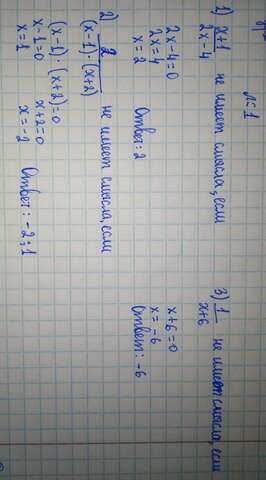 №1
1) x+1
2x-4 не имеет смысла, если
2x-4=0
2x=4
x=2
Ответ: 2
2) 2
(x-1)·(x+2) не имеет смысла, если
(x-1)·(x+2)=0
x-1=0 x+2=0
x=1 x=-2
Ответ: -2; 1
3) 1
x+6 не имеет смысла, если
x+6=0
x=-6
Ответ: -6